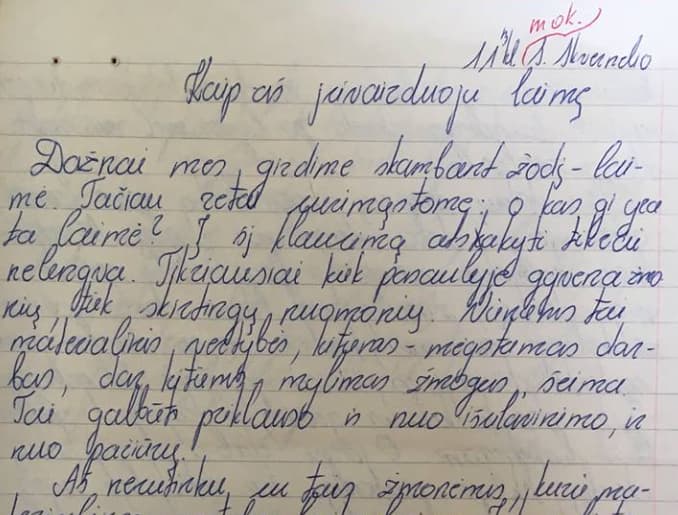 mok.
11 kl S. Skverndio
Kaip aš įsivaizduoju laimę
Dažnai mes girdime skambant žodį - lai-
mė. Tačiau retai susimąstome: o kas gi yra
ta laimė? Į šį klausimą atsakyti tikrai
nelengva. Tikriausiai kiek pasaulyje gyvena žmo
nių, tiek skirtingų nuomonių. Vieniems tai
materialinės vertybės, kitiems - mėgstamas dar-
bas, dar kitiems mylimas žmogus, šeima.
Tai galbūt priklauso ir nuo išsilavinimo, ir
nuo pažiūrų.
Aš nesutinku su tais žmonėmis, kurie ma-